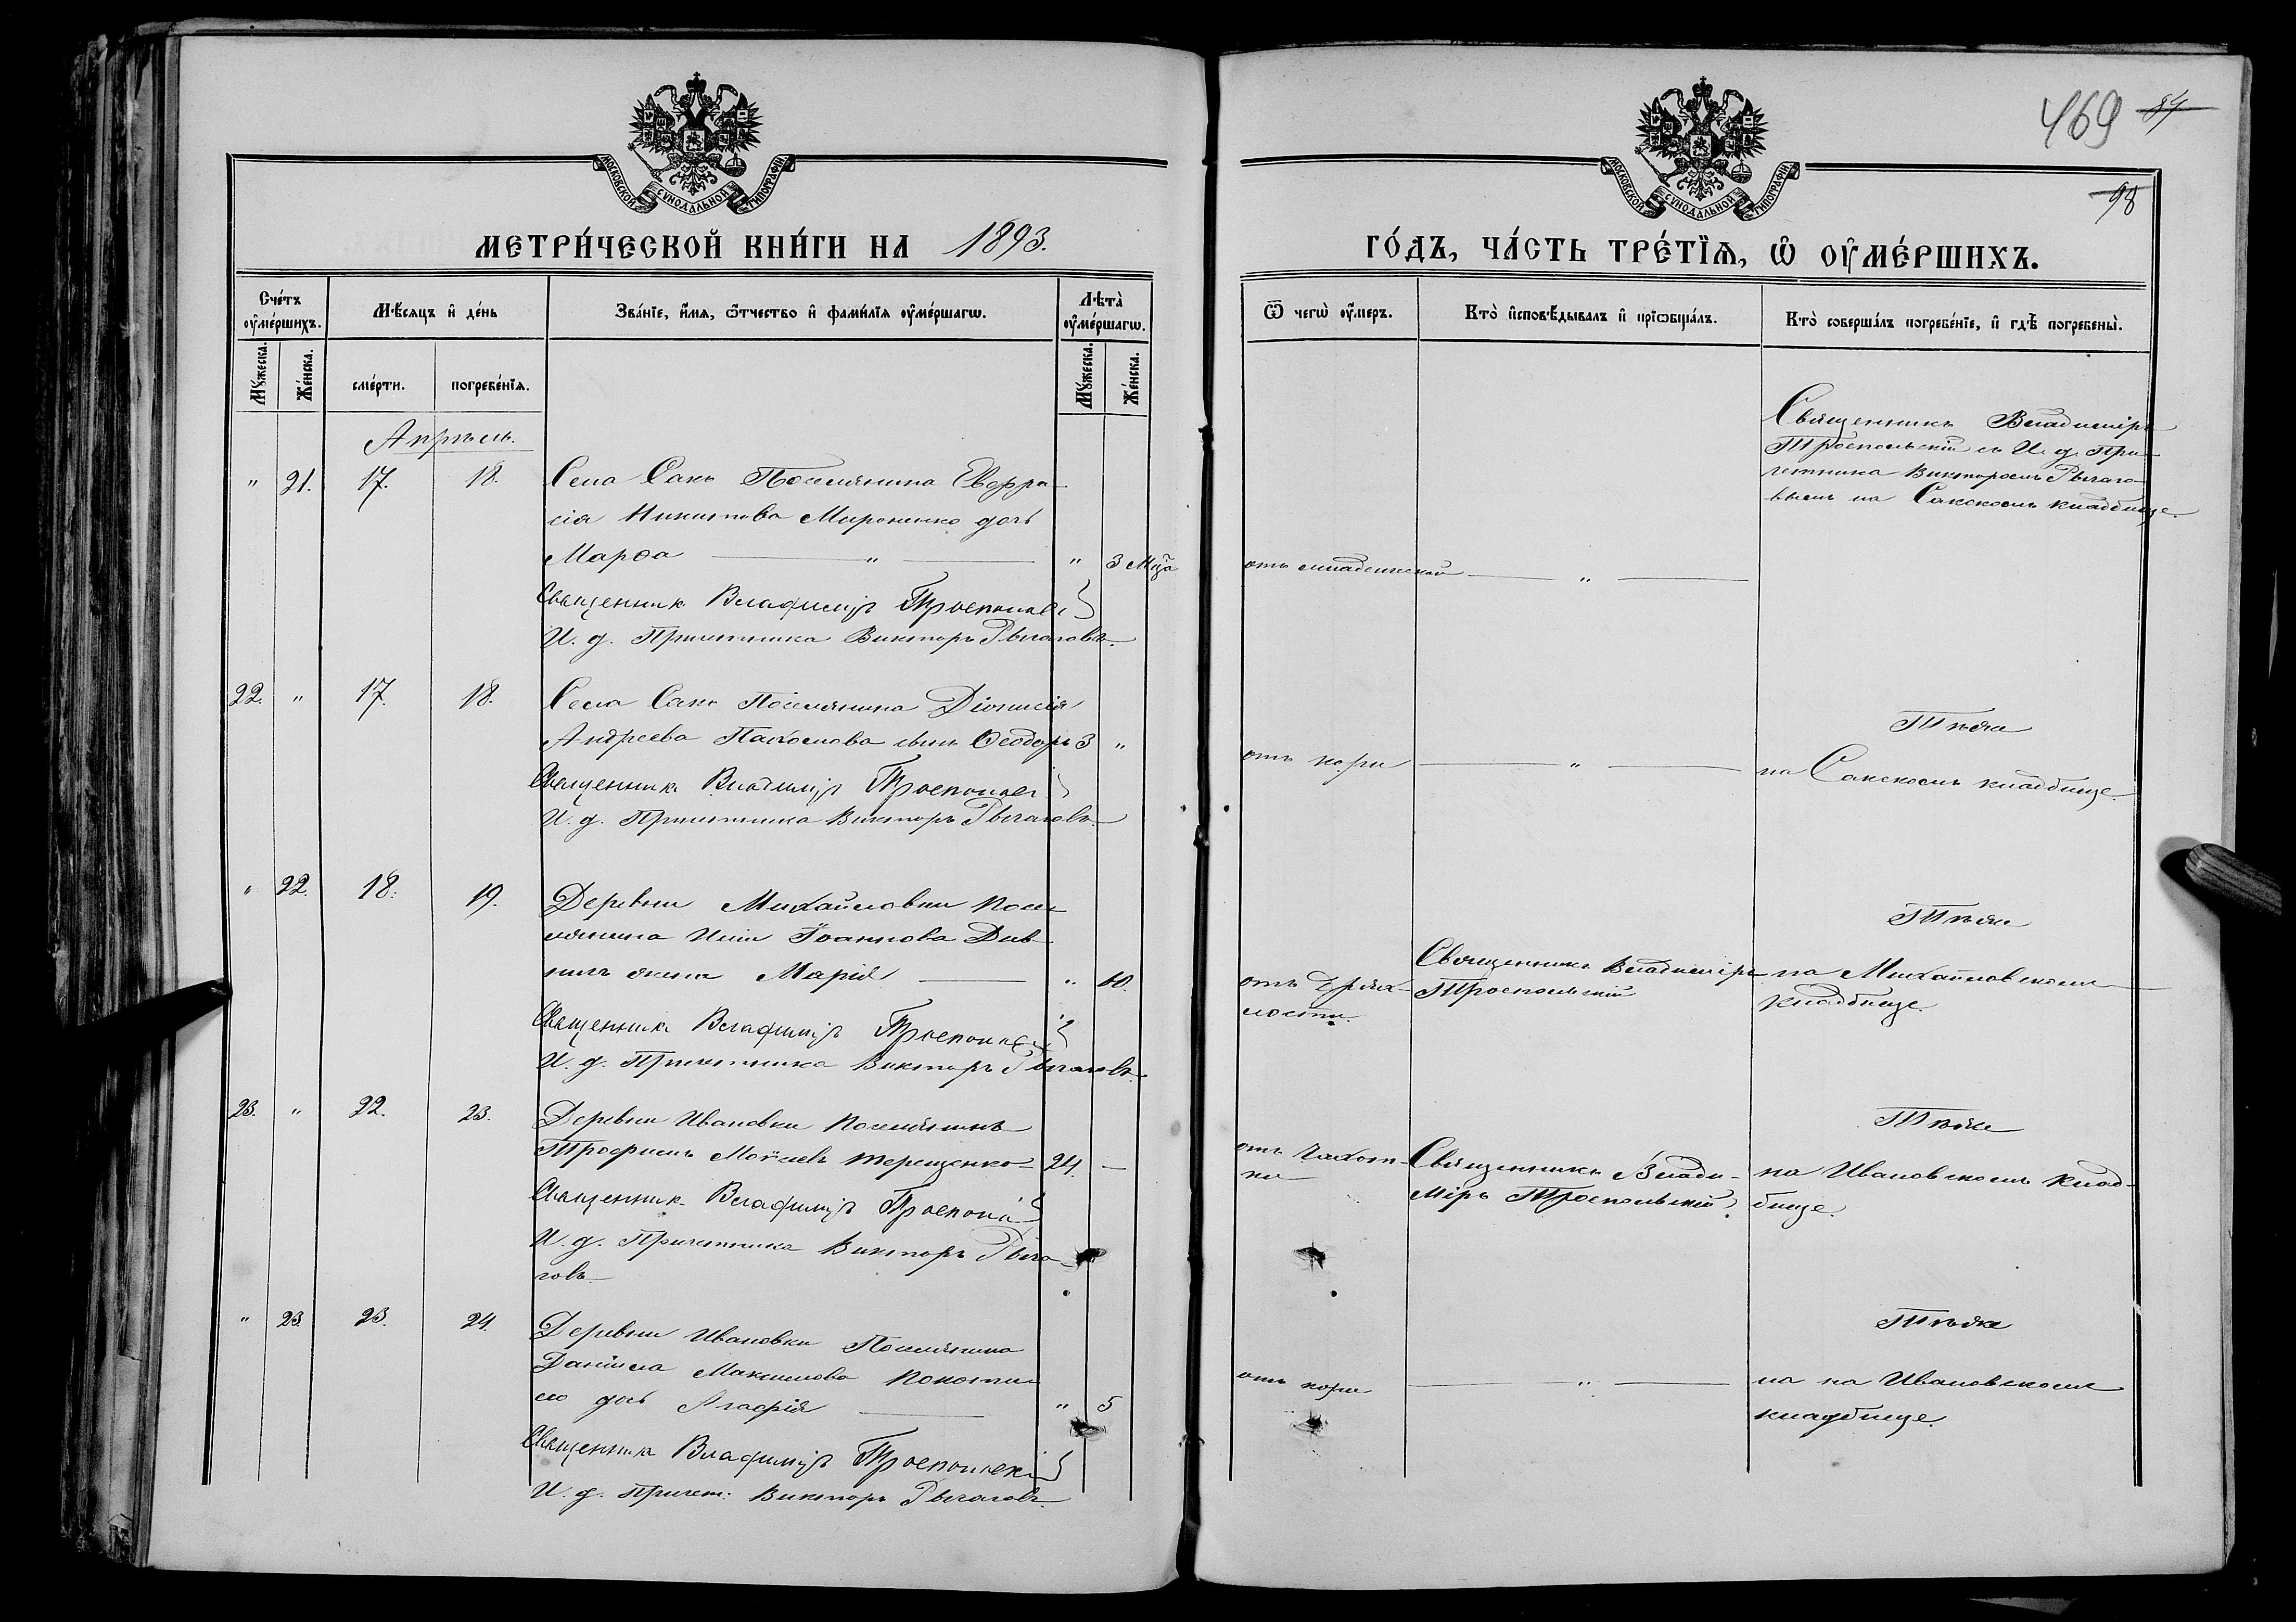 469 84
98
МОСКОВСКОЙ СѴНОДАЛЬНОЙ ТИПОГРАФІИ
МОСКОВСКОЙ СѴНОДАЛЬНОЙ ТИПОГРАФІИ
МЕТРИ́ЧЕСКОЙ КНИ́ГИ НА 1893.
ГО́ДЪ, ЧА́СТЬ ТРЕ́ТЇѦ, Ѡ҆ ОУ҆МЕ́РШИХЪ.
Сче́тъ оу҆ме́ршихъ.
Мꙋ́жеска.
Же́нска.
Мѣ́сѧцъ и҆ де́нь
сме́рти.
погребе́нїѧ.
Зва́нїе, и҆́мѧ, ѻ҆́тчество и҆ фами́лїѧ оу҆ме́ршагѡ.
Лѣта̀ оу҆ме́ршагѡ.
Мꙋ́жеска.
Же́нска.
Ѿ чегѡ̀ оу҆́меръ.
Кто̀ и҆сповѣ́дывалъ и҆ прїѡбща́лъ.
Кто̀ соверша́лъ погребе́нїе, и҆ гдѣ̀ погребены̀.
Апрѣль.
" 21. 17. 18. Села Саки Поселянина Евфра-
сія Никитова Мироненко дочь
Марѳа " " 3 Мца
Священникъ Владиміръ Троепольск
И. д. Причетника Викторъ Рычаговъ.
отъ младенческой "
Священникъ Владиміръ
Троепольскій съ И. д. При-
четника Викторомъ Рычаго-
вымъ на Сакскомъ кладбище.
22. " 17. 18. Села Саки Поселянина Діонисія
Андреева Пахомова сынъ Ѳеодоръ 3 "
Священникъ Владиміръ Троепольск
И. д. Причетника Викторъ Рычаговъ
отъ кори "
Тѣже
на Сакскомъ кладбище.
" 22. 18. 19. Деревни Михайловки Посе-
лянина Иліи Іоаннова Див-
нич жена Марія " 60.
Священникъ Владиміръ Троепольск
И. д. Причетника Викторъ Рычаговъ
отъ Дрях-
лости.
Священникъ Владиміръ
Троепольскій
Тѣже
на Михайловскомъ
кладбище.
23. " 22. 23. Деревни Ивановки Поселянинъ
Трофимъ Моѵсеевъ Терещенко 24. —
Священникъ Владиміръ Троепольск
И. д. Причетника Викторъ Рыча-
говъ
отъ Чахот-
ки
Священникъ Влади-
міръ Троепольскій.
Тѣже
на Ивановскомъ Клад-
бище.
" 23. 23. 24. Деревни Ивановки Поселянина
Даніила Максимова
дочь Агафія " 5
Священникъ Владиміръ Троепольскій
И. д. Причет: Викторъ Рычаговъ.
отъ кори "
Тѣже
на на Ивановскомъ
кладбище.